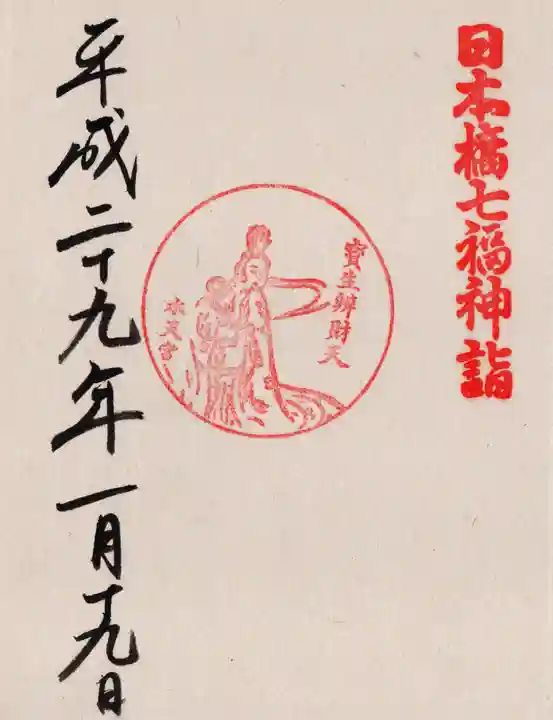 日本橋七福神詣
寳生辨財天
水天宮
平成二十九年一月十九日